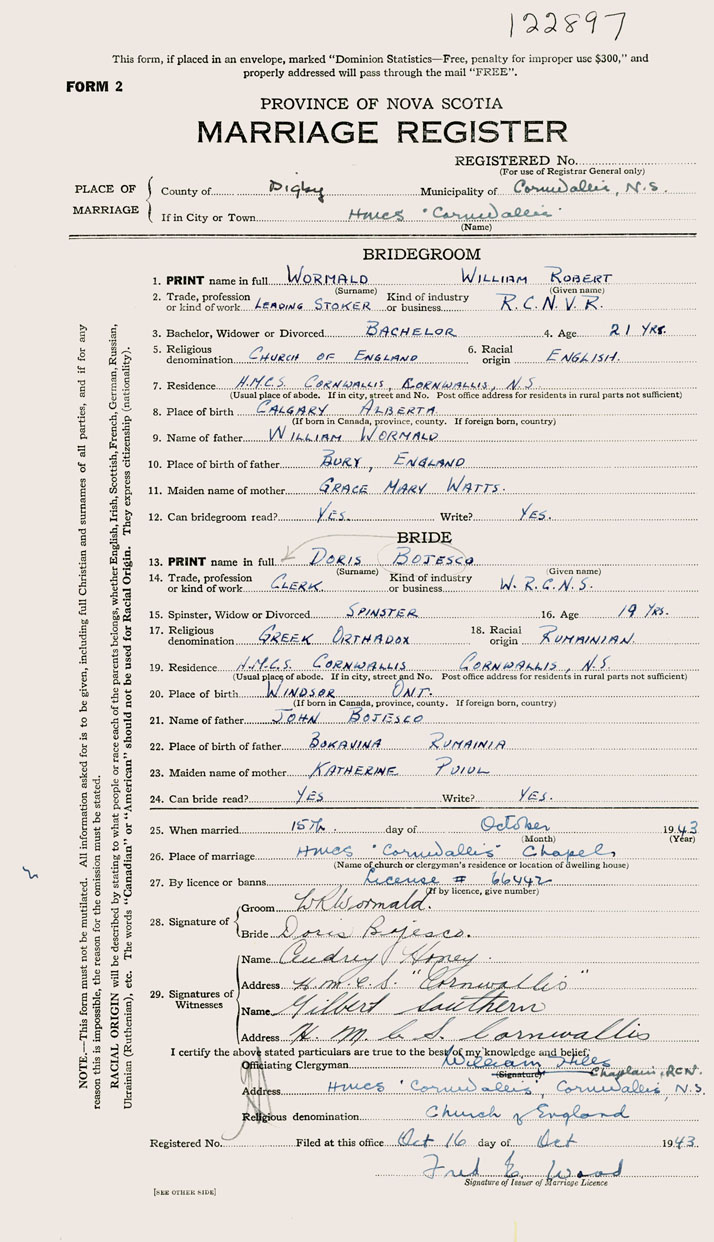 122897
This form, if placed in an envelope, marked "Dominion Statistics—Free, penalty for improper use $300," and
properly addressed will pass through the mail "FREE".
FORM 2
PROVINCE OF NOVA SCOTIA
MARRIAGE REGISTER
REGISTERED No.
(For use of Registrar General only)
PLACE OF MARRIAGE
County of Digby Municipality of Cornwallis, N.S.
If in City or Town HMCS "Cornwallis"
(Name)
BRIDEGROOM
1. PRINT name in full WORMALD WILLIAM ROBERT
(Surname) (Given name)
2. Trade, profession or kind of work LEADING STOKER Kind of industry or business R.C.N.V.R.
3. Bachelor, Widower or Divorced BACHELOR 4. Age 21 YRS.
5. Religious denomination CHURCH OF ENGLAND 6. Racial origin ENGLISH.
7. Residence H.M.C.S. CORNWALLIS, CORNWALLIS, N.S.
(Usual place of abode. If in city, street and No. Post office address for residents in rural parts not sufficient)
8. Place of birth CALGARY ALBERTA
(If born in Canada, province, county. If foreign born, country)
9. Name of father WILLIAM WORMALD
10. Place of birth of father BURY, ENGLAND
11. Maiden name of mother GRACE MARY WATTS.
12. Can bridegroom read? YES. Write? YES.
BRIDE
13. PRINT name in full DORIS BOJESCO
(Surname) (Given name)
14. Trade, profession or kind of work CLERK Kind of industry or business W.R.C.N.S.
15. Spinster, Widow or Divorced SPINSTER 16. Age 19 YRS.
17. Religious denomination GREEK ORTHADOX 18. Racial origin RUMAINIAN.
19. Residence H.M.C.S. CORNWALLIS CORNWALLIS, N.S.
(Usual place of abode. If in city, street and No. Post office address for residents in rural parts not sufficient)
20. Place of birth WINDSOR ONT.
(If born in Canada, province, county. If foreign born, country)
21. Name of father JOHN BOJESCO
22. Place of birth of father BOKAVINA RUMAINIA
23. Maiden name of mother KATHERINE PUIUL
24. Can bride read? YES Write? YES.
25. When married 15th. day of October 1943
(Month) (Year)
26. Place of marriage HMCS "Cornwallis" Chapel
(Name of church or clergyman's residence or location of dwelling house)
27. By licence or banns License # 66442
(If by licence, give number)
28. Signature of
Groom WRWormald.
Bride Doris Bojesco.
29. Signatures of Witnesses
Name Audrey Honey
Address H.M.C.S. "Cornwallis"
Name Gilbert Southern
Address H. M. C. S. Cornwallis
I certify the above stated particulars are true to the best of my knowledge and belief.
Officiating Clergyman William
(Signature) Chaplain, RCN.
Address HMCS "Cornwallis, Cornwallis, N.S.
Religious denomination Church of England
Registered No. Filed at this office Oct 16 day of Oct 1943
Fred E. Wood
Signature of Issuer of Marriage Licence
[SEE OTHER SIDE]
NOTE.—This form must not be mutilated. All information asked for is to be given, including full Christian and surnames of all parties, and if for any
reason this is impossible, the reason for the omission must be stated.
RACIAL ORIGIN will be described by stating to what people or race each of the parents belongs, whether English, Irish, Scottish, French, German, Russian,
Ukrainian (Ruthenian), etc. The words "Canadian" or "American" should not be used for Racial Origin. They express citizenship (nationality).